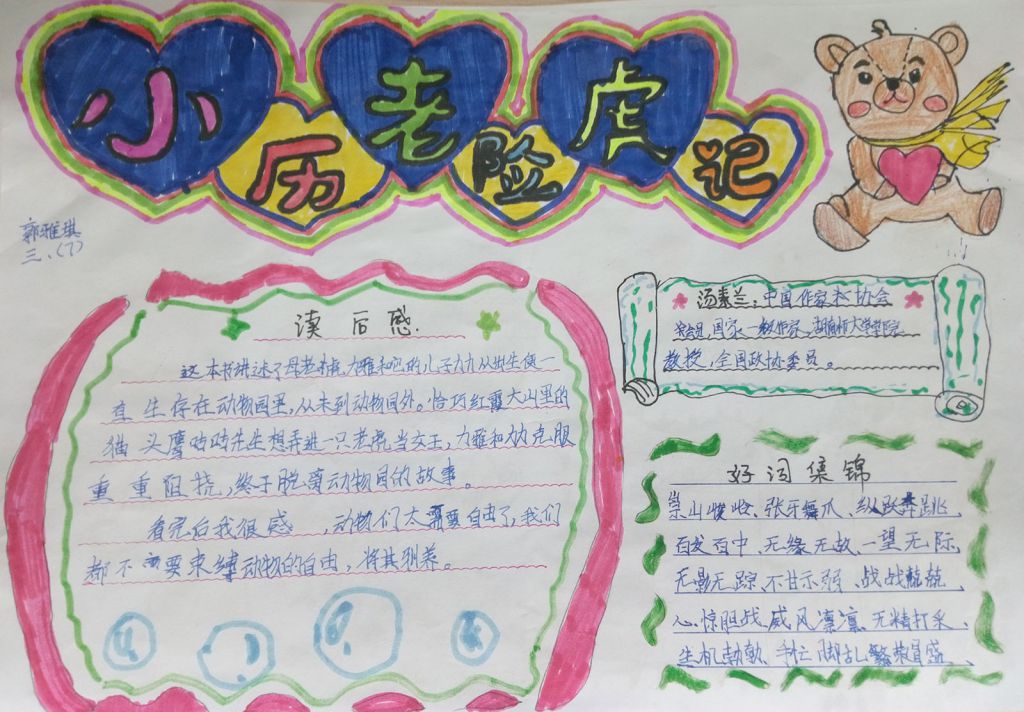 小老虎
历险记
郭雅琪
三、(7)
读后感.
这本书讲述了母老虎力雅和它的儿子力力从出生便一
直生存在动物园里,从未到动物园外。恰巧红霞大山里的
猫头鹰咕咕先生想弄进一只老虎当女王,力雅和力力克服
重重阻挠,终于脱离动物园的故事。
看完后我很感,动物们太需要自由了,我们
都不要束缚动物的自由,将其驯养。
汤素兰:中国作家协会
国家一级作家,湖南师大学院
教授,全国政协委员。
好词集锦
崇山峻岭、张牙舞爪、纵跃奔跳、
百发百中、无缘无故、一望无际、
无影无踪、不甘示弱、战战兢兢、
心惊胆战、威风凛凛、无精打采、
生机勃勃、手忙脚乱、繁荣昌盛、